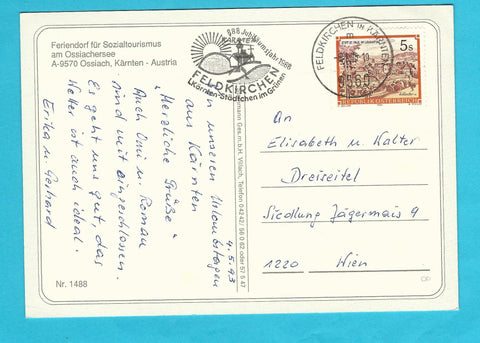 Feriendorf für Sozialtourismus
am Ossiachersee
A-9570 Ossiach, Kärnten - Austria
888 Jubiläumsjahr 1988
KÄRNTEN
FELDKIRCHEN
Kärnten-Städtchen im Grünen
FELDKIRCHEN in KÄRNTEN
5s
REPUBLIK ÖSTERREICH
4.5.93
In unseren Urlaubstagen
aus Kärnten
"Herzliche Grüße"
Auch Omi u. Roman
sind mit eingeschlossen.
Es geht uns gut, das
Wetter ist auch ideal.
Erika u. Gerhard
Ges.m.b.H. Villach, Telefon 04242/
An
Elisabeth u. Walter
Dreiseitel
Siedlung Jägermais 9
1220 Wien
Nr. 1488